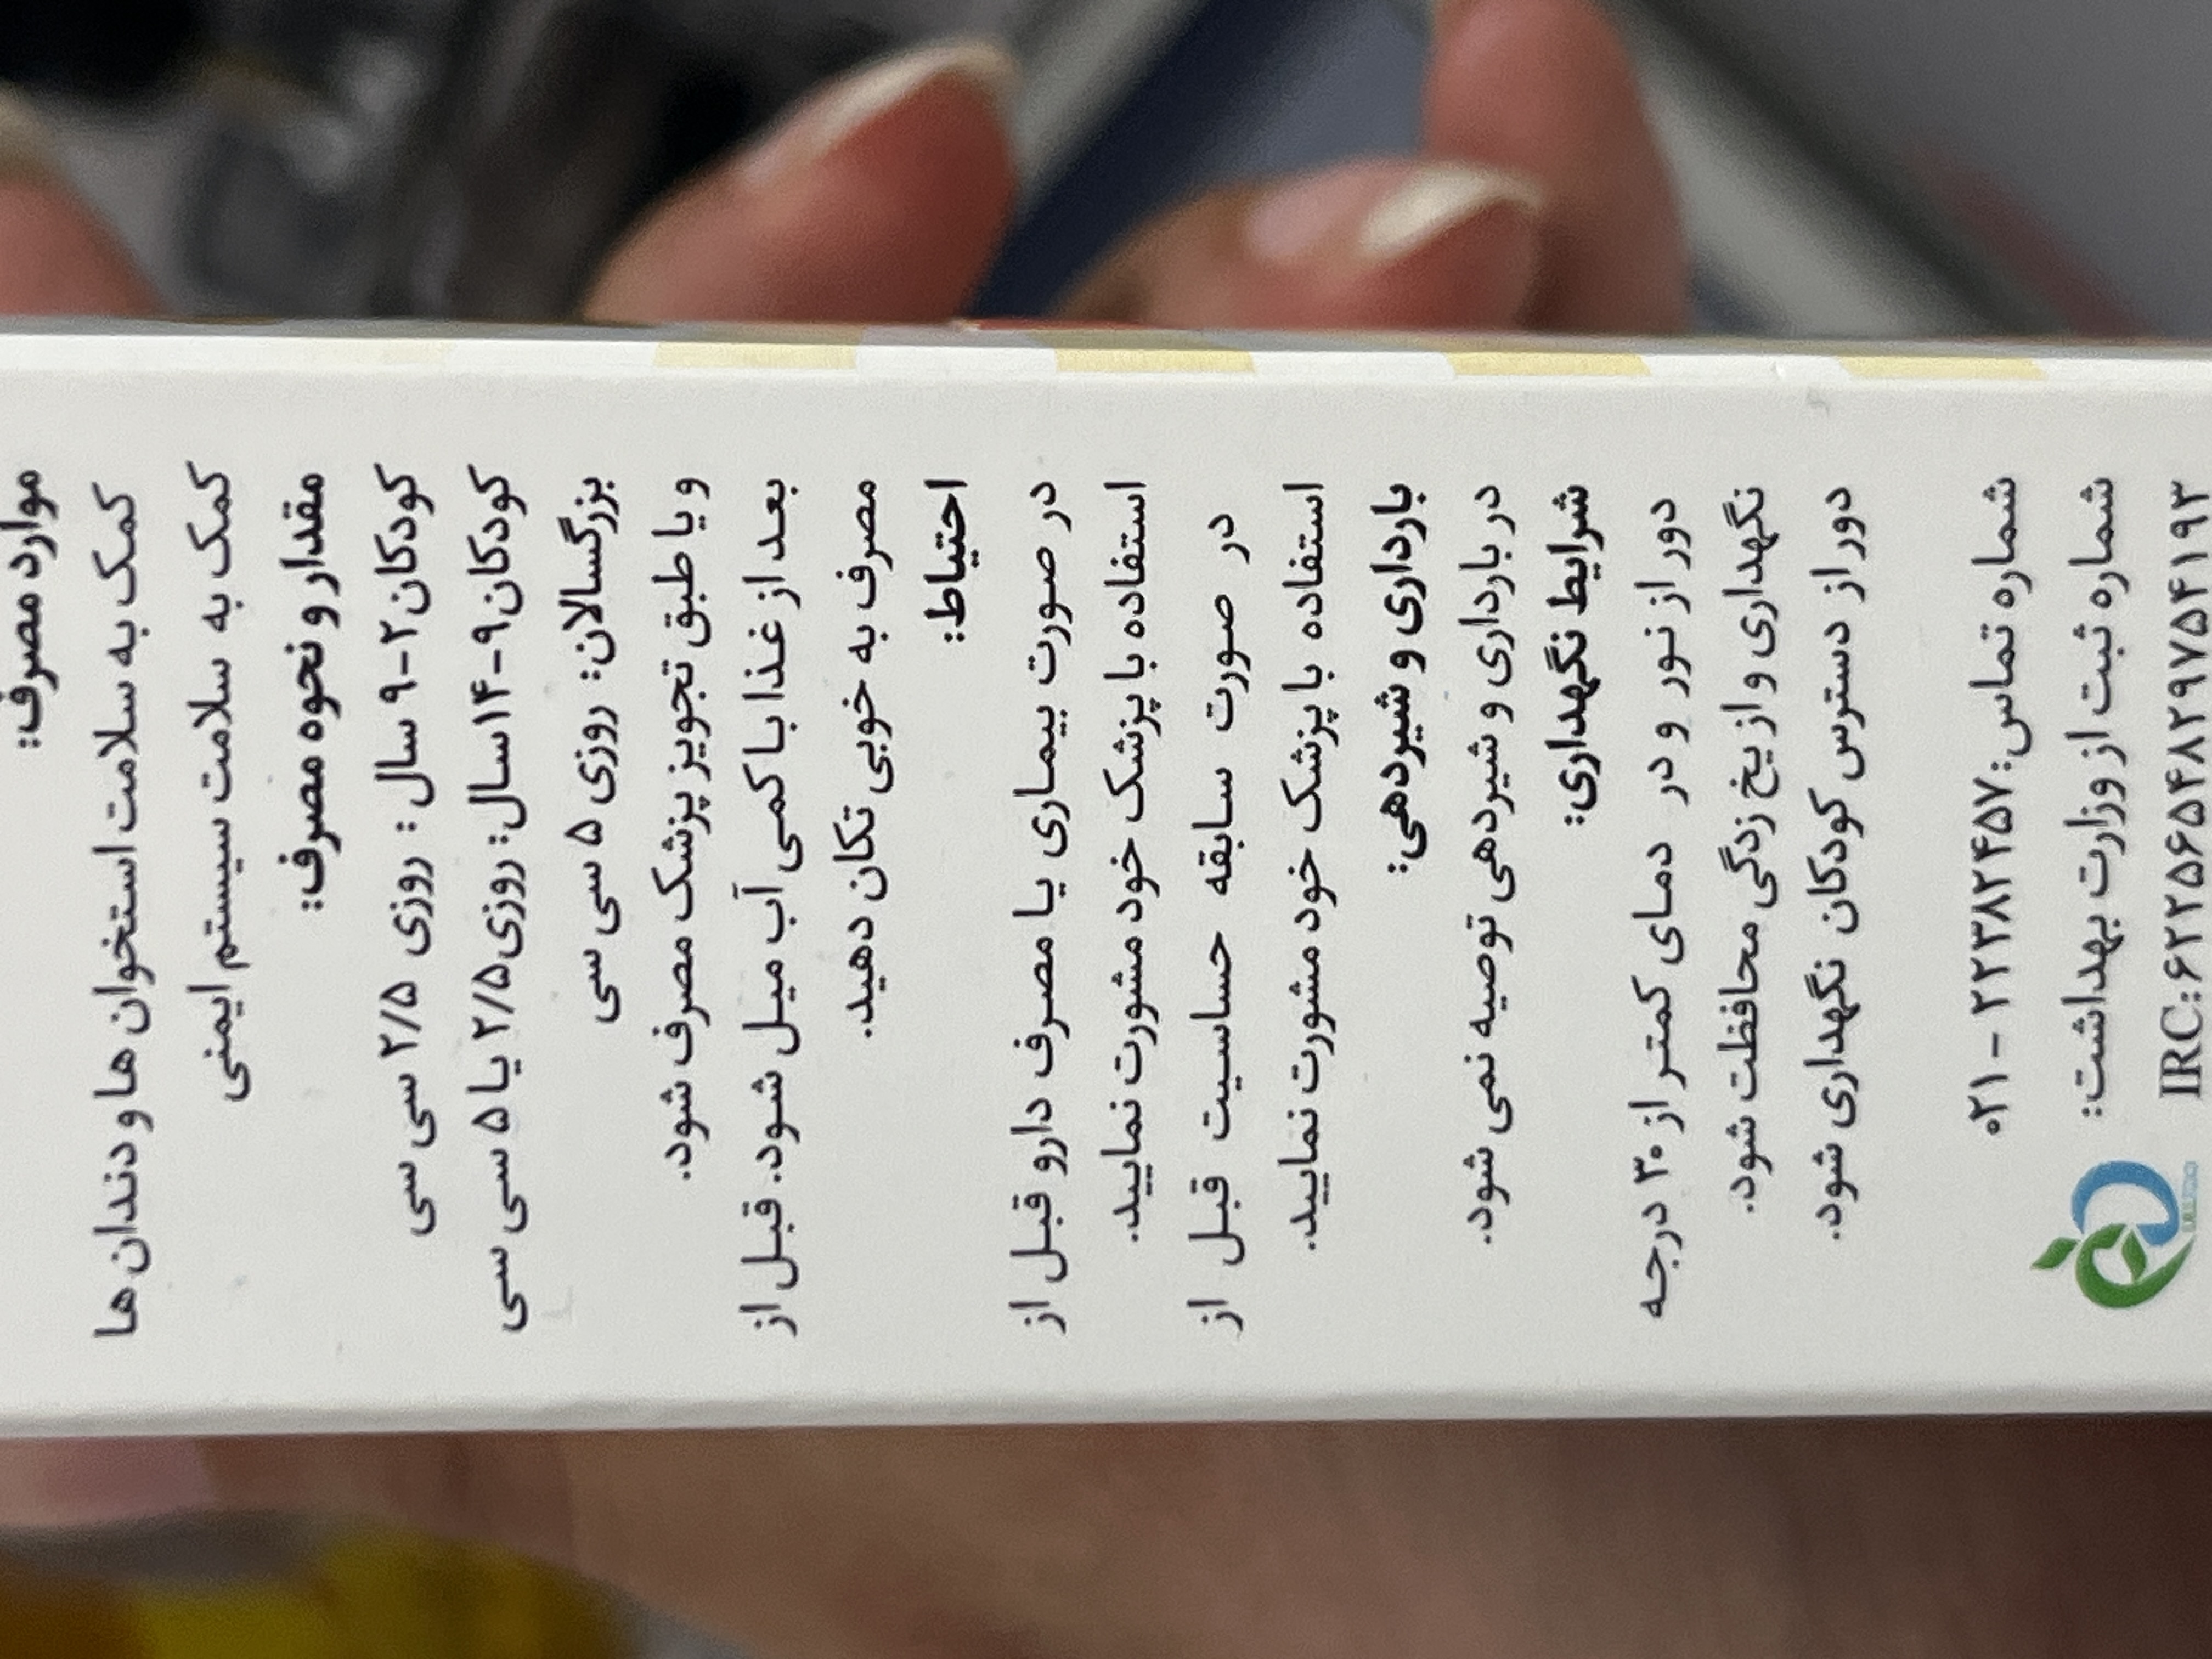 موارد مصرف:
کمک به سلامت استخوان ها و دندان ها
کمک به سلامت سیستم ایمنی
مقدار و نحوه مصرف:
کودکان ۲-۹ سال : روزی ۲/۵ سی سی
کودکان ۹-۱۴سال: روزی ۲/۵ یا ۵ سی سی
بزرگسالان: روزی ۵ سی سی
و یا طبق تجویز پزشک مصرف شود.
بعد از غذا با کمی آب میل شود. قبل از
مصرف به خوبی تکان دهید.
احتیاط:
در صورت بیماری یا مصرف دارو قبل از
استفاده با پزشک خود مشورت نمایید.
در صورت سابقه حساسیت قبل از
استفاده با پزشک خود مشورت نمایید.
بارداری و شیردهی:
در بارداری و شیردهی توصیه نمی شود.
شرایط نگهداری:
دور از نور و در دمای کمتر از ۳۰ درجه
نگهداری و از یخ زدگی محافظت شود.
دور از دسترس کودکان نگهداری شود.
شماره تماس: ۲۲۳۸۲۴۵۷ - ۰۲۱
شماره ثبت از وزارت بهداشت:
IRC:۶۲۲۵۶۵۴۸۲۹۷۵۴۱۹۳